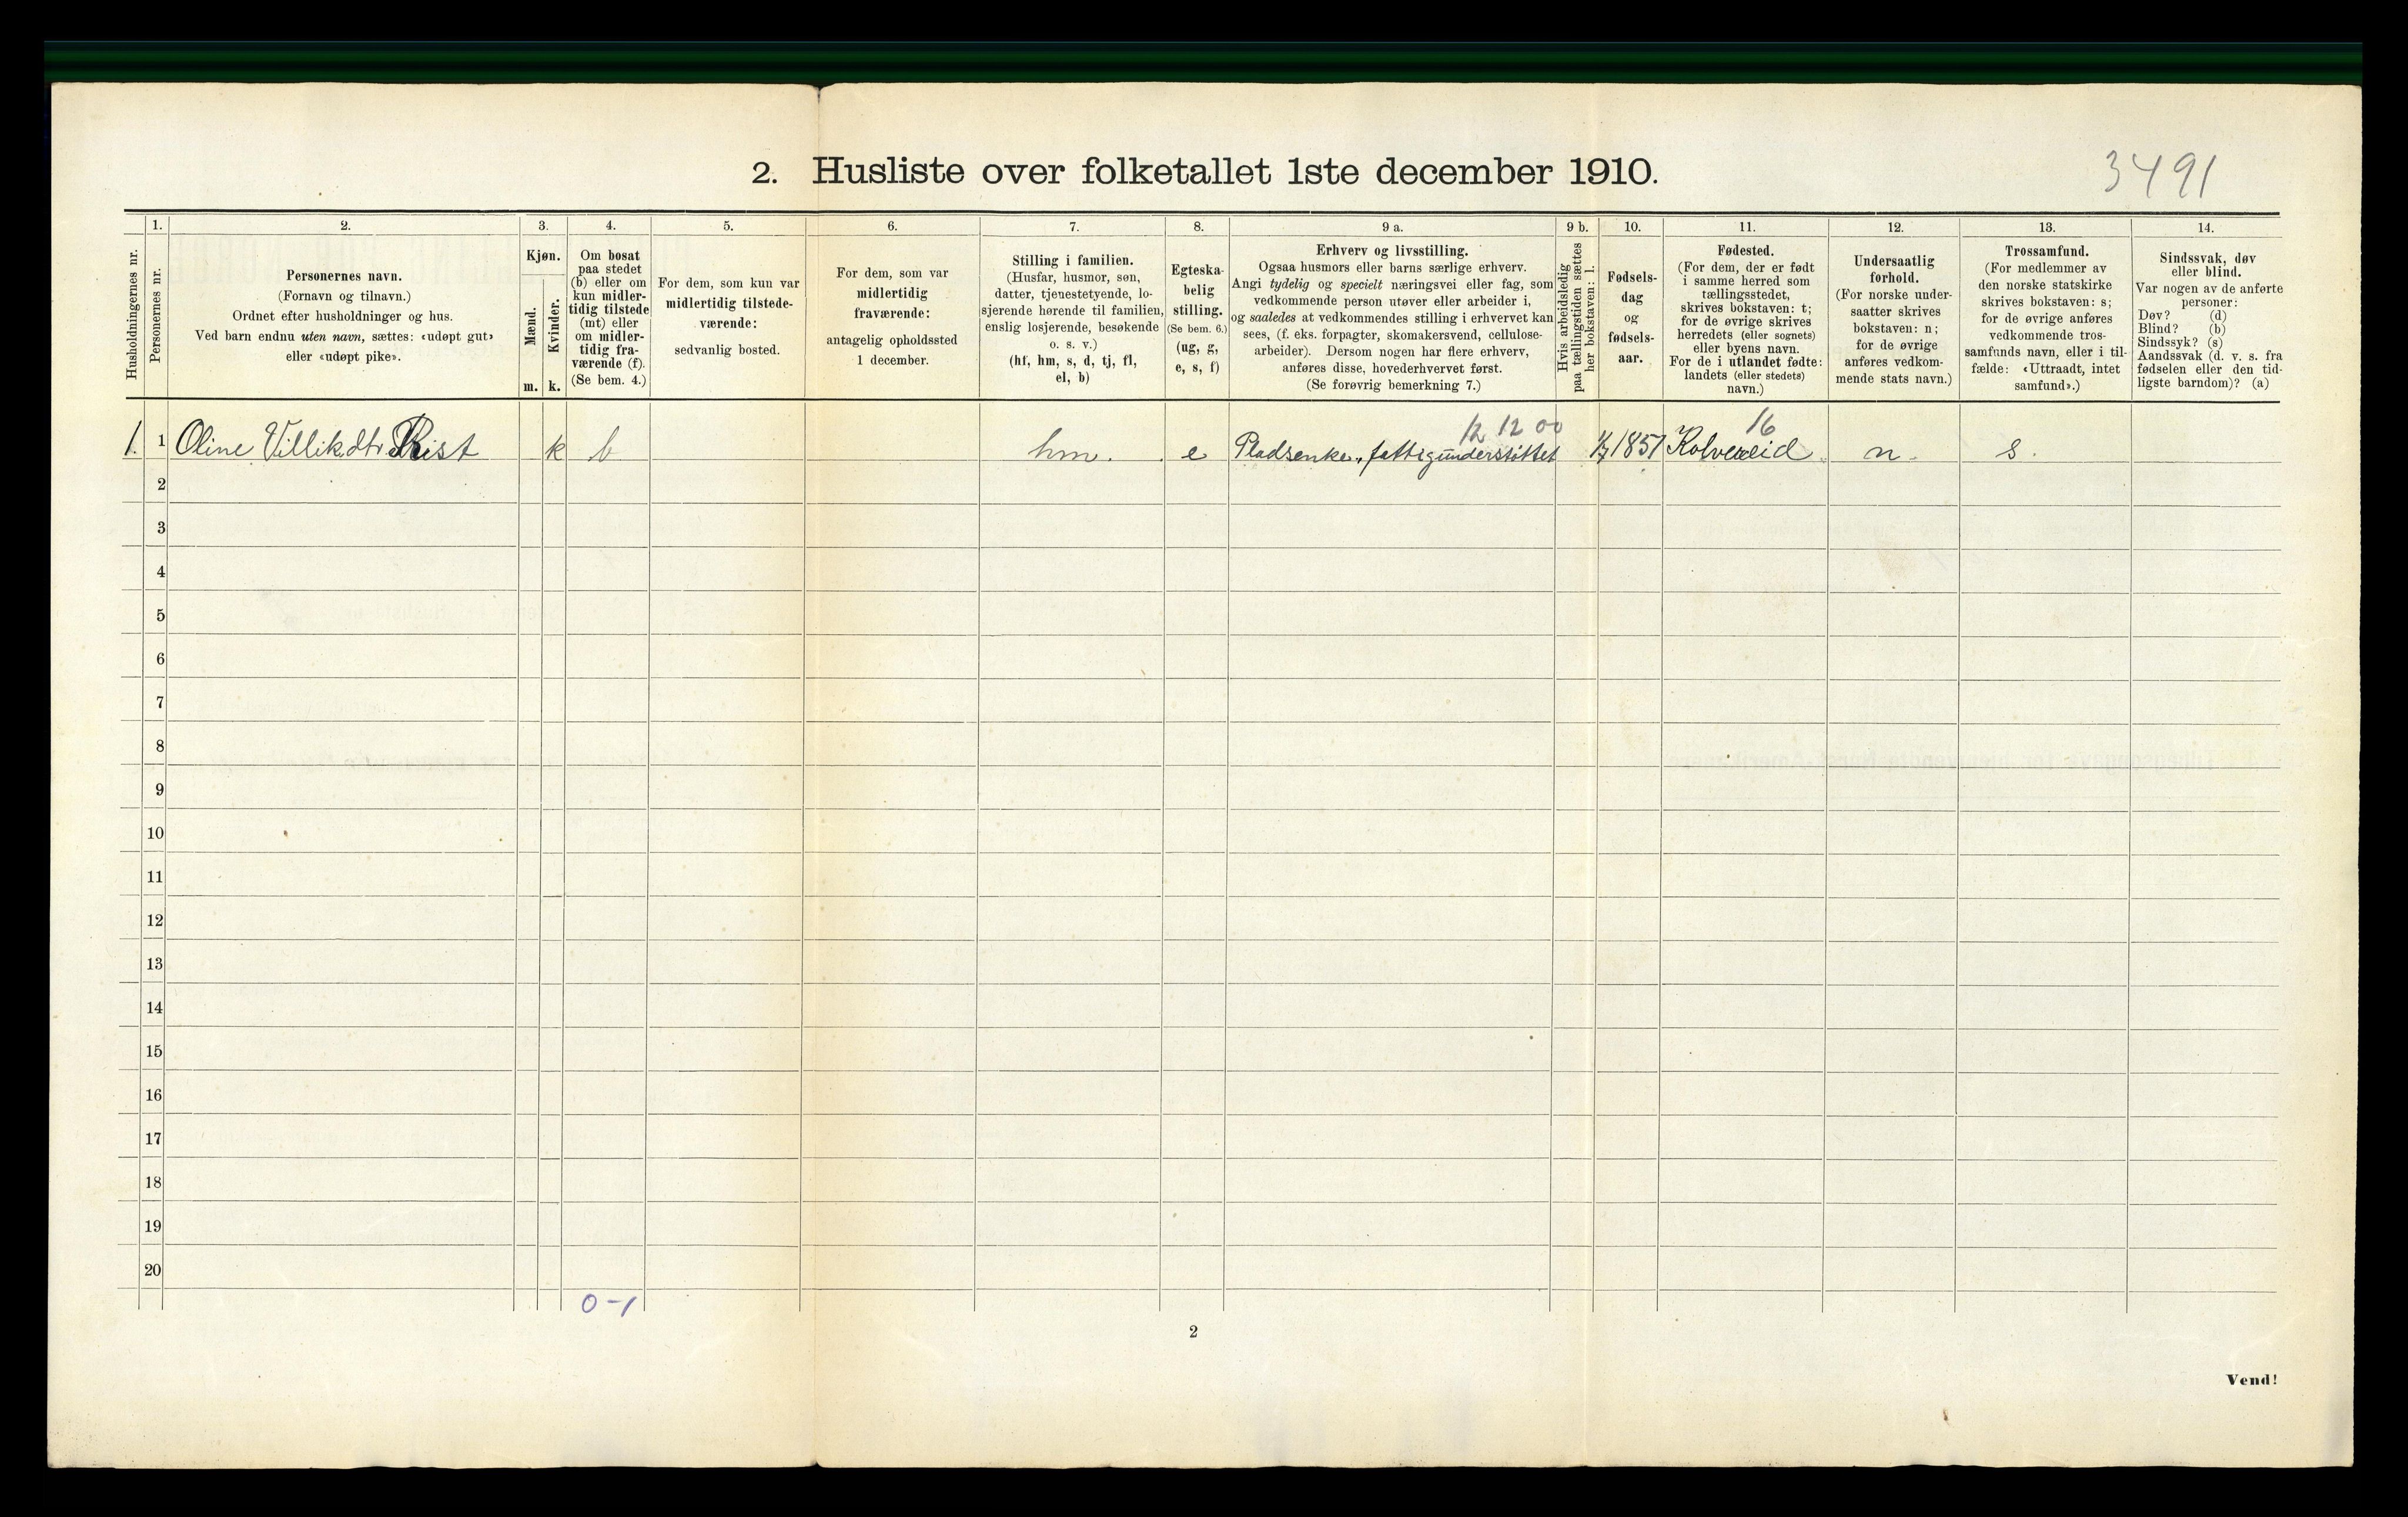 2. Husliste over folketallet 1ste december 1910.
3491
1.
2.
3.
4.
5.
6.
7.
8.
9 a.
9 b.
10.
11.
12.
13.
14.
Husholdningernes nr.
Personernes nr.
Personernes navn.
(Fornavn og tilnavn.)
Ordnet efter husholdninger og hus.
Ved barn endnu uten navn, sættes: «udøpt gut»
eller «udøpt pike».
Kjøn.
Mænd.
Kvinder.
m.
k.
Om bosat
paa stedet
(b) eller om
kun midler-
tidig tilstede
(mt) eller
om midler-
tidig fra-
værende (f).
(Se bem. 4.)
For dem, som kun var
midlertidig tilstede-
værende:
sedvanlig bosted.
For dem, som var
midlertidig
fraværende:
antagelig opholdssted
1 december.
Stilling i familien.
(Husfar, husmor, søn,
datter, tjenestetyende, lo-
sjerende hørende til familien,
enslig losjerende, besøkende
o. s. v.)
(hf, hm, s, d, tj, fl,
el, b)
Egteska-
belig
stilling.
(Se bem. 6.)
(ug, g,
e, s, f)
Erhverv og livsstilling.
Ogsaa husmors eller barns særlige erhverv.
Angi tydelig og specielt næringsvei eller fag, som
vedkommende person utøver eller arbeider i,
og saaledes at vedkommendes stilling i erhvervet kan
sees, (f. eks. forpagter, skomakersvend, cellulose-
arbeider). Dersom nogen har flere erhverv,
anføres disse, hovederhvervet først.
(Se forøvrig bemerkning 7.)
Hvis arbeidsledig
paa tællingstiden sættes
her bokstaven: l.
Fødsels-
dag
og
fødsels-
aar.
Fødested.
(For dem, der er født
i samme herred som
tællingsstedet,
skrives bokstaven: t;
for de øvrige skrives
herredets (eller sognets)
eller byens navn.
For de i utlandet fødte:
landets (eller stedets)
navn.)
Undersaatlig
forhold.
(For norske under-
saatter skrives
bokstaven: n;
for de øvrige
anføres vedkom-
mende stats navn.)
Trossamfund.
(For medlemmer av
den norske statskirke
skrives bokstaven: s;
for de øvrige anføres
vedkommende tros-
samfunds navn, eller i til-
fælde: «Uttraadt, intet
samfund».)
Sindssvak, døv
eller blind.
Var nogen av de anførte
personer:
Døv? (d)
Blind? (b)
Sindssyk? (s)
Aandssvak (d. v. s. fra
fødselen eller den tid-
ligste barndom)? (a)
12 12 00
16
1. 1 Oline Villikdtr Rist k b hm. e Pladsenke, fattigunderstøttet 1851 Kolvereid n. s.
2
3
4
5
6
7
8
9
10
11
12
13
14
15
16
17
18
19
20
0-1
2
Vend!